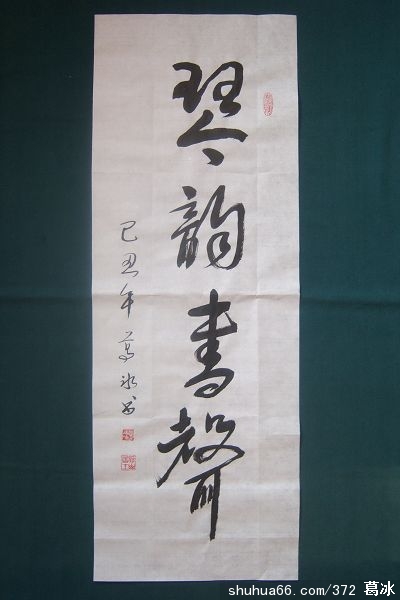 琴韵書聲
己丑年 葛冰书
shuhua66.com/372 葛冰